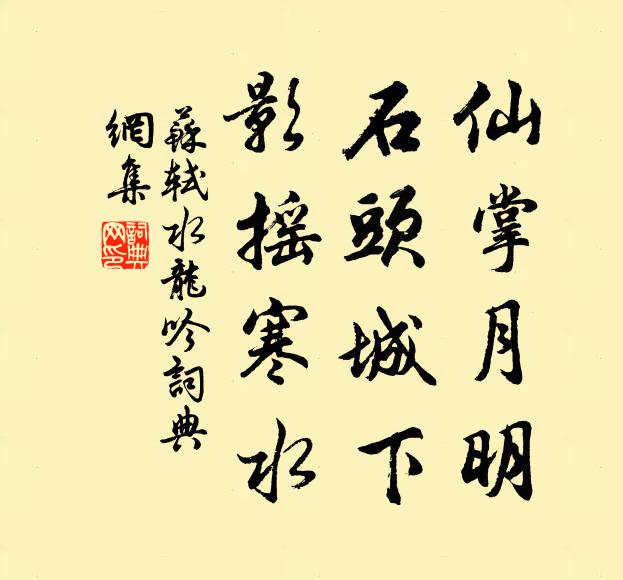 仙掌月明
石頭城下
影摇寒水
蘇軾水龍吟詞典
網集
詞典
网印